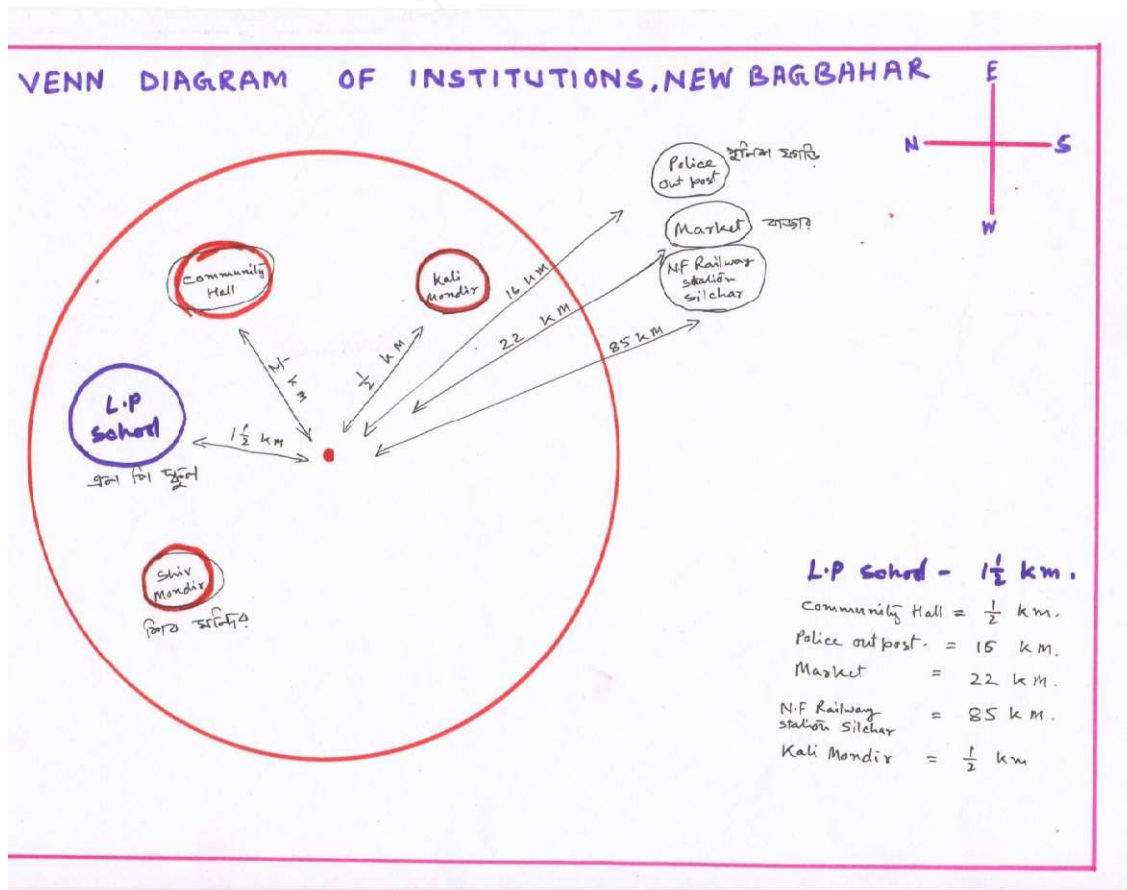 VENN DIAGRAM OF INSTITUTIONS, NEW BAGBAHAR
E
N
S
W
Police
out post
পুলিশ ফাড়ি
Market
বাজার
N.F Railway
station
silchar
Community
Hall
Kali
Mondir
16 KM
22 KM
85 KM
½ KM
½ KM
L.P
School
1½ KM
এল পি স্কুল
Shiv
Mondir
শিব মন্দির
L.P School - 1½ km.
Community Hall = ½ km.
Police outpost. = 16 KM.
Market = 22 KM.
N.F Railway
station Silchar = 85 KM.
Kali Mondir = ½ km